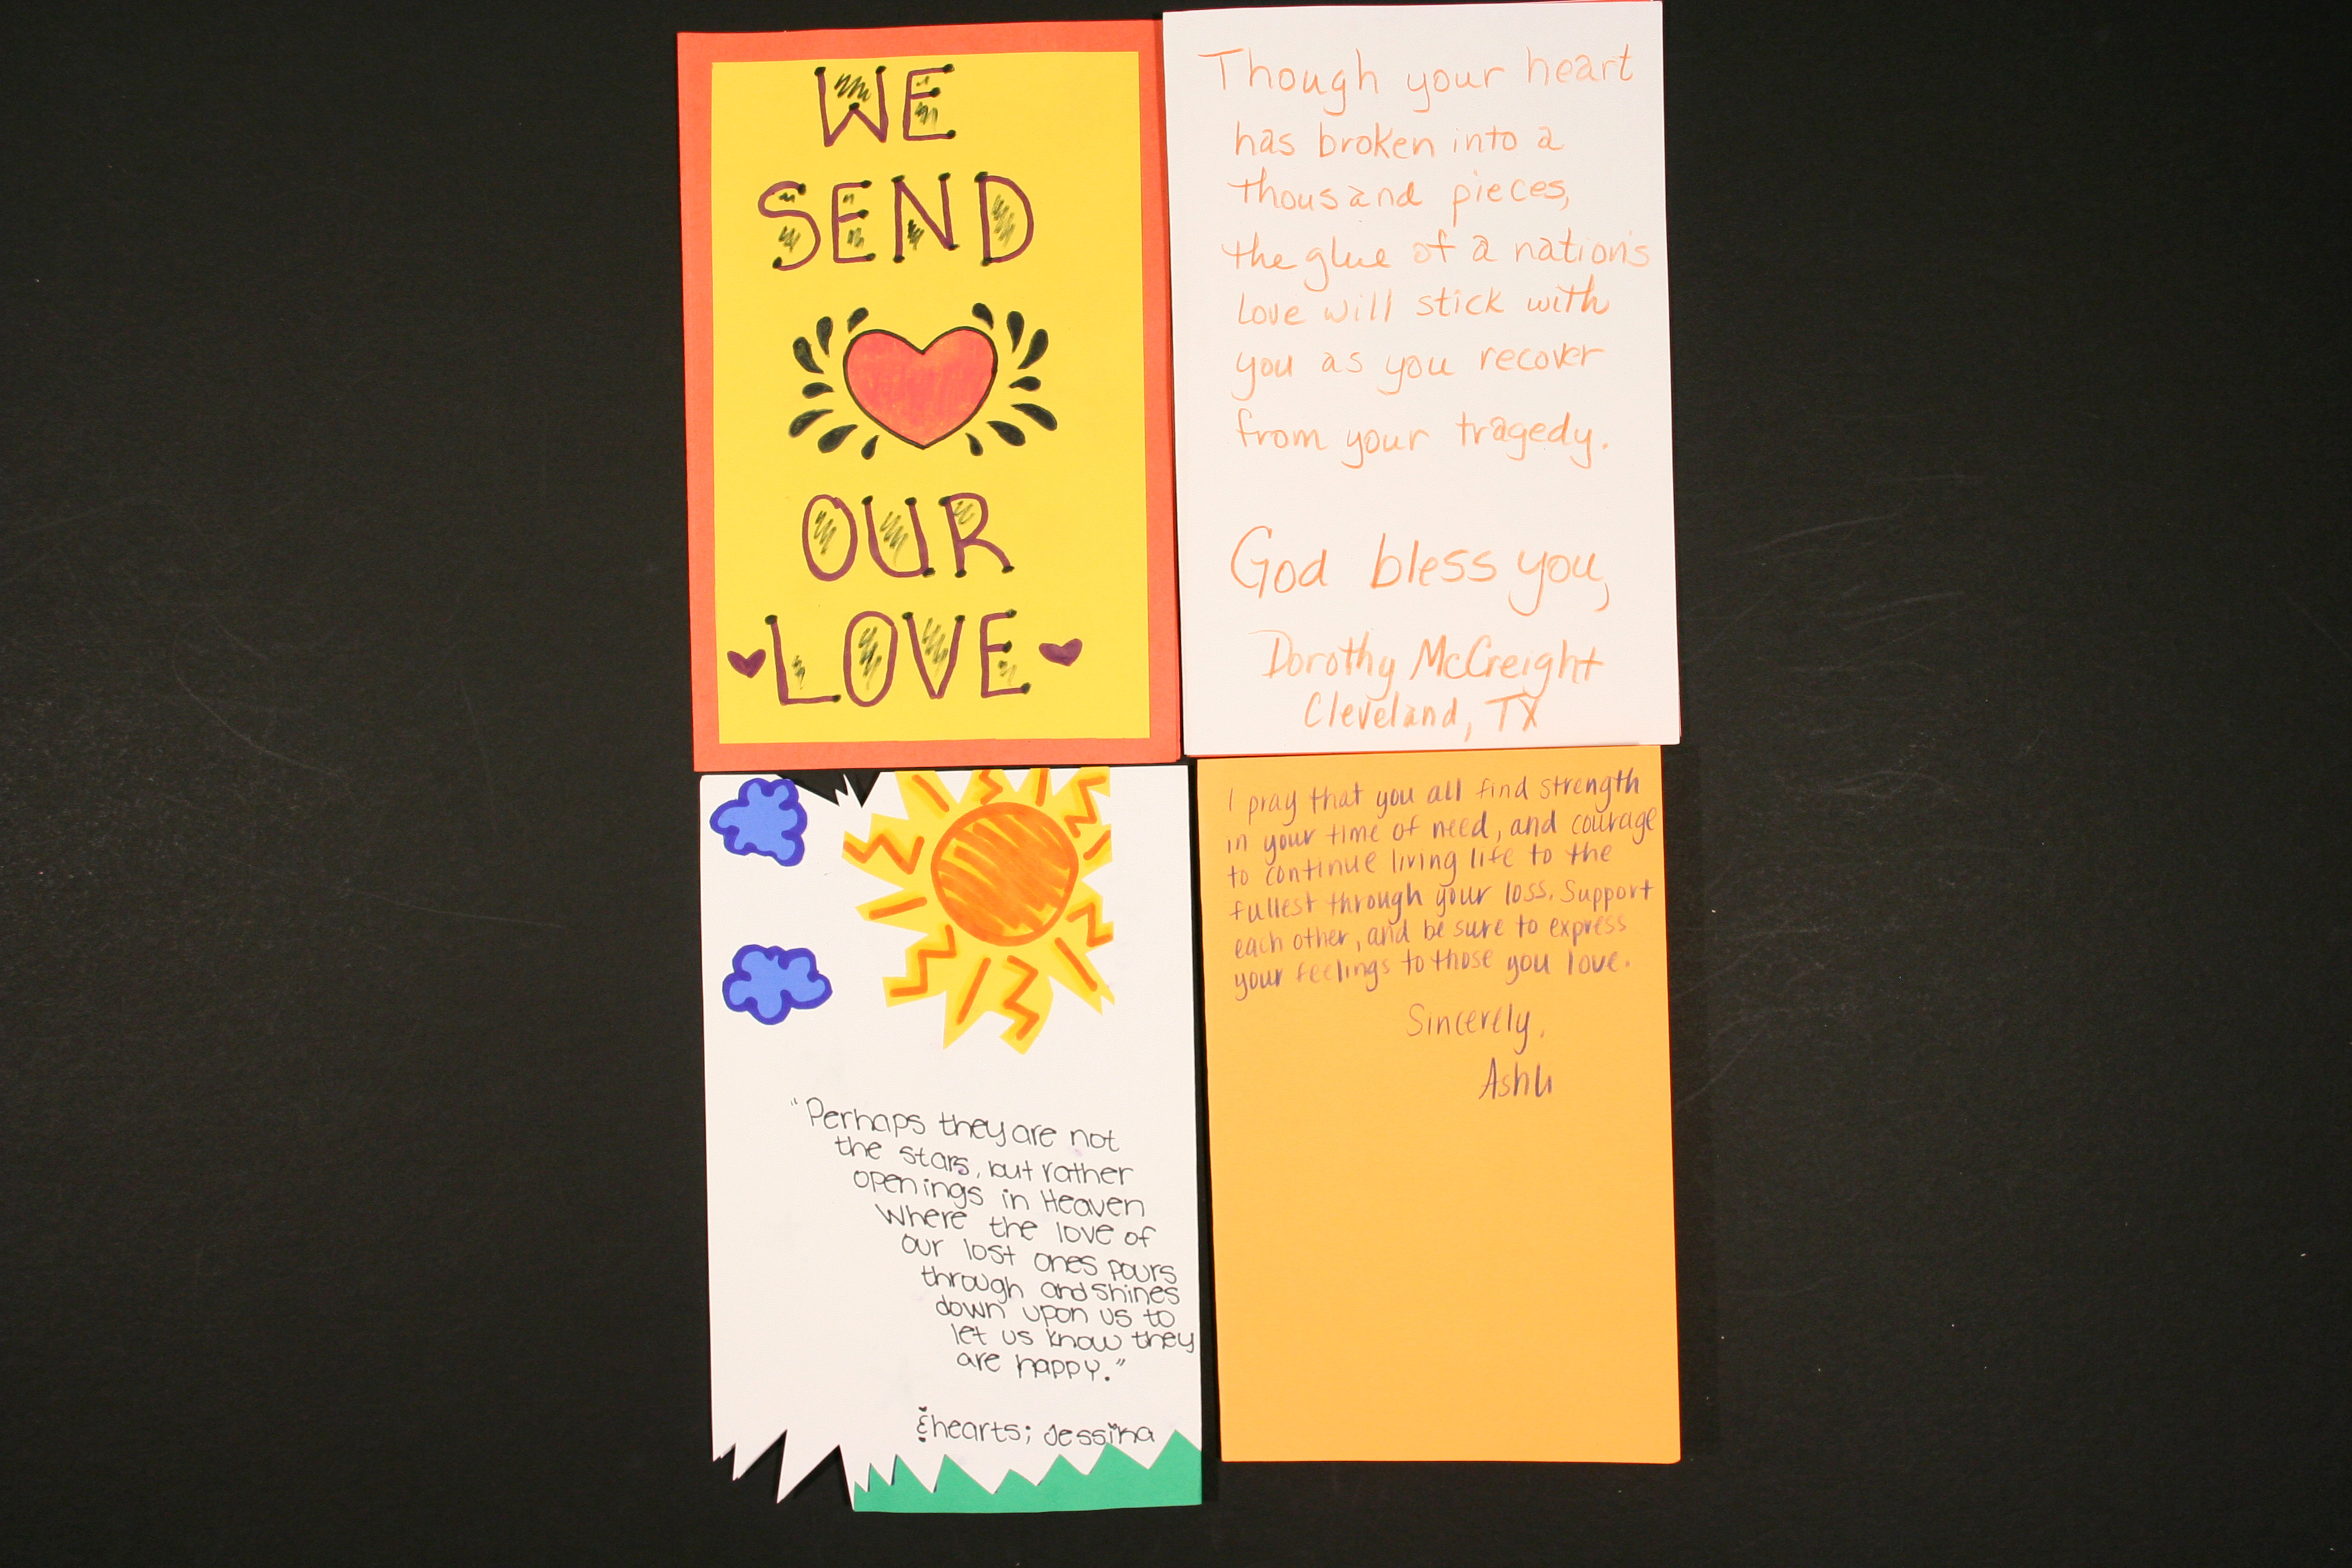 WE
SEND
OUR
LOVE
Though your heart
has broken into a
thousand pieces,
the glue of a nation's
Love will stick with
you as you recover
from your tragedy.
God bless you,
Dorothy McCreight
Cleveland, TX
"Perhaps they are not
the stars, but rather
openings in Heaven
Where the love of
our lost ones pours
through and shines
down upon us to
let us know they
are happy."
& hearts; Jessika
I pray that you all find strength
in your time of need, and courage
to continue living life to the
fullest through your loss. Support
each other, and be sure to express
your feelings to those you love.
Sincerely,